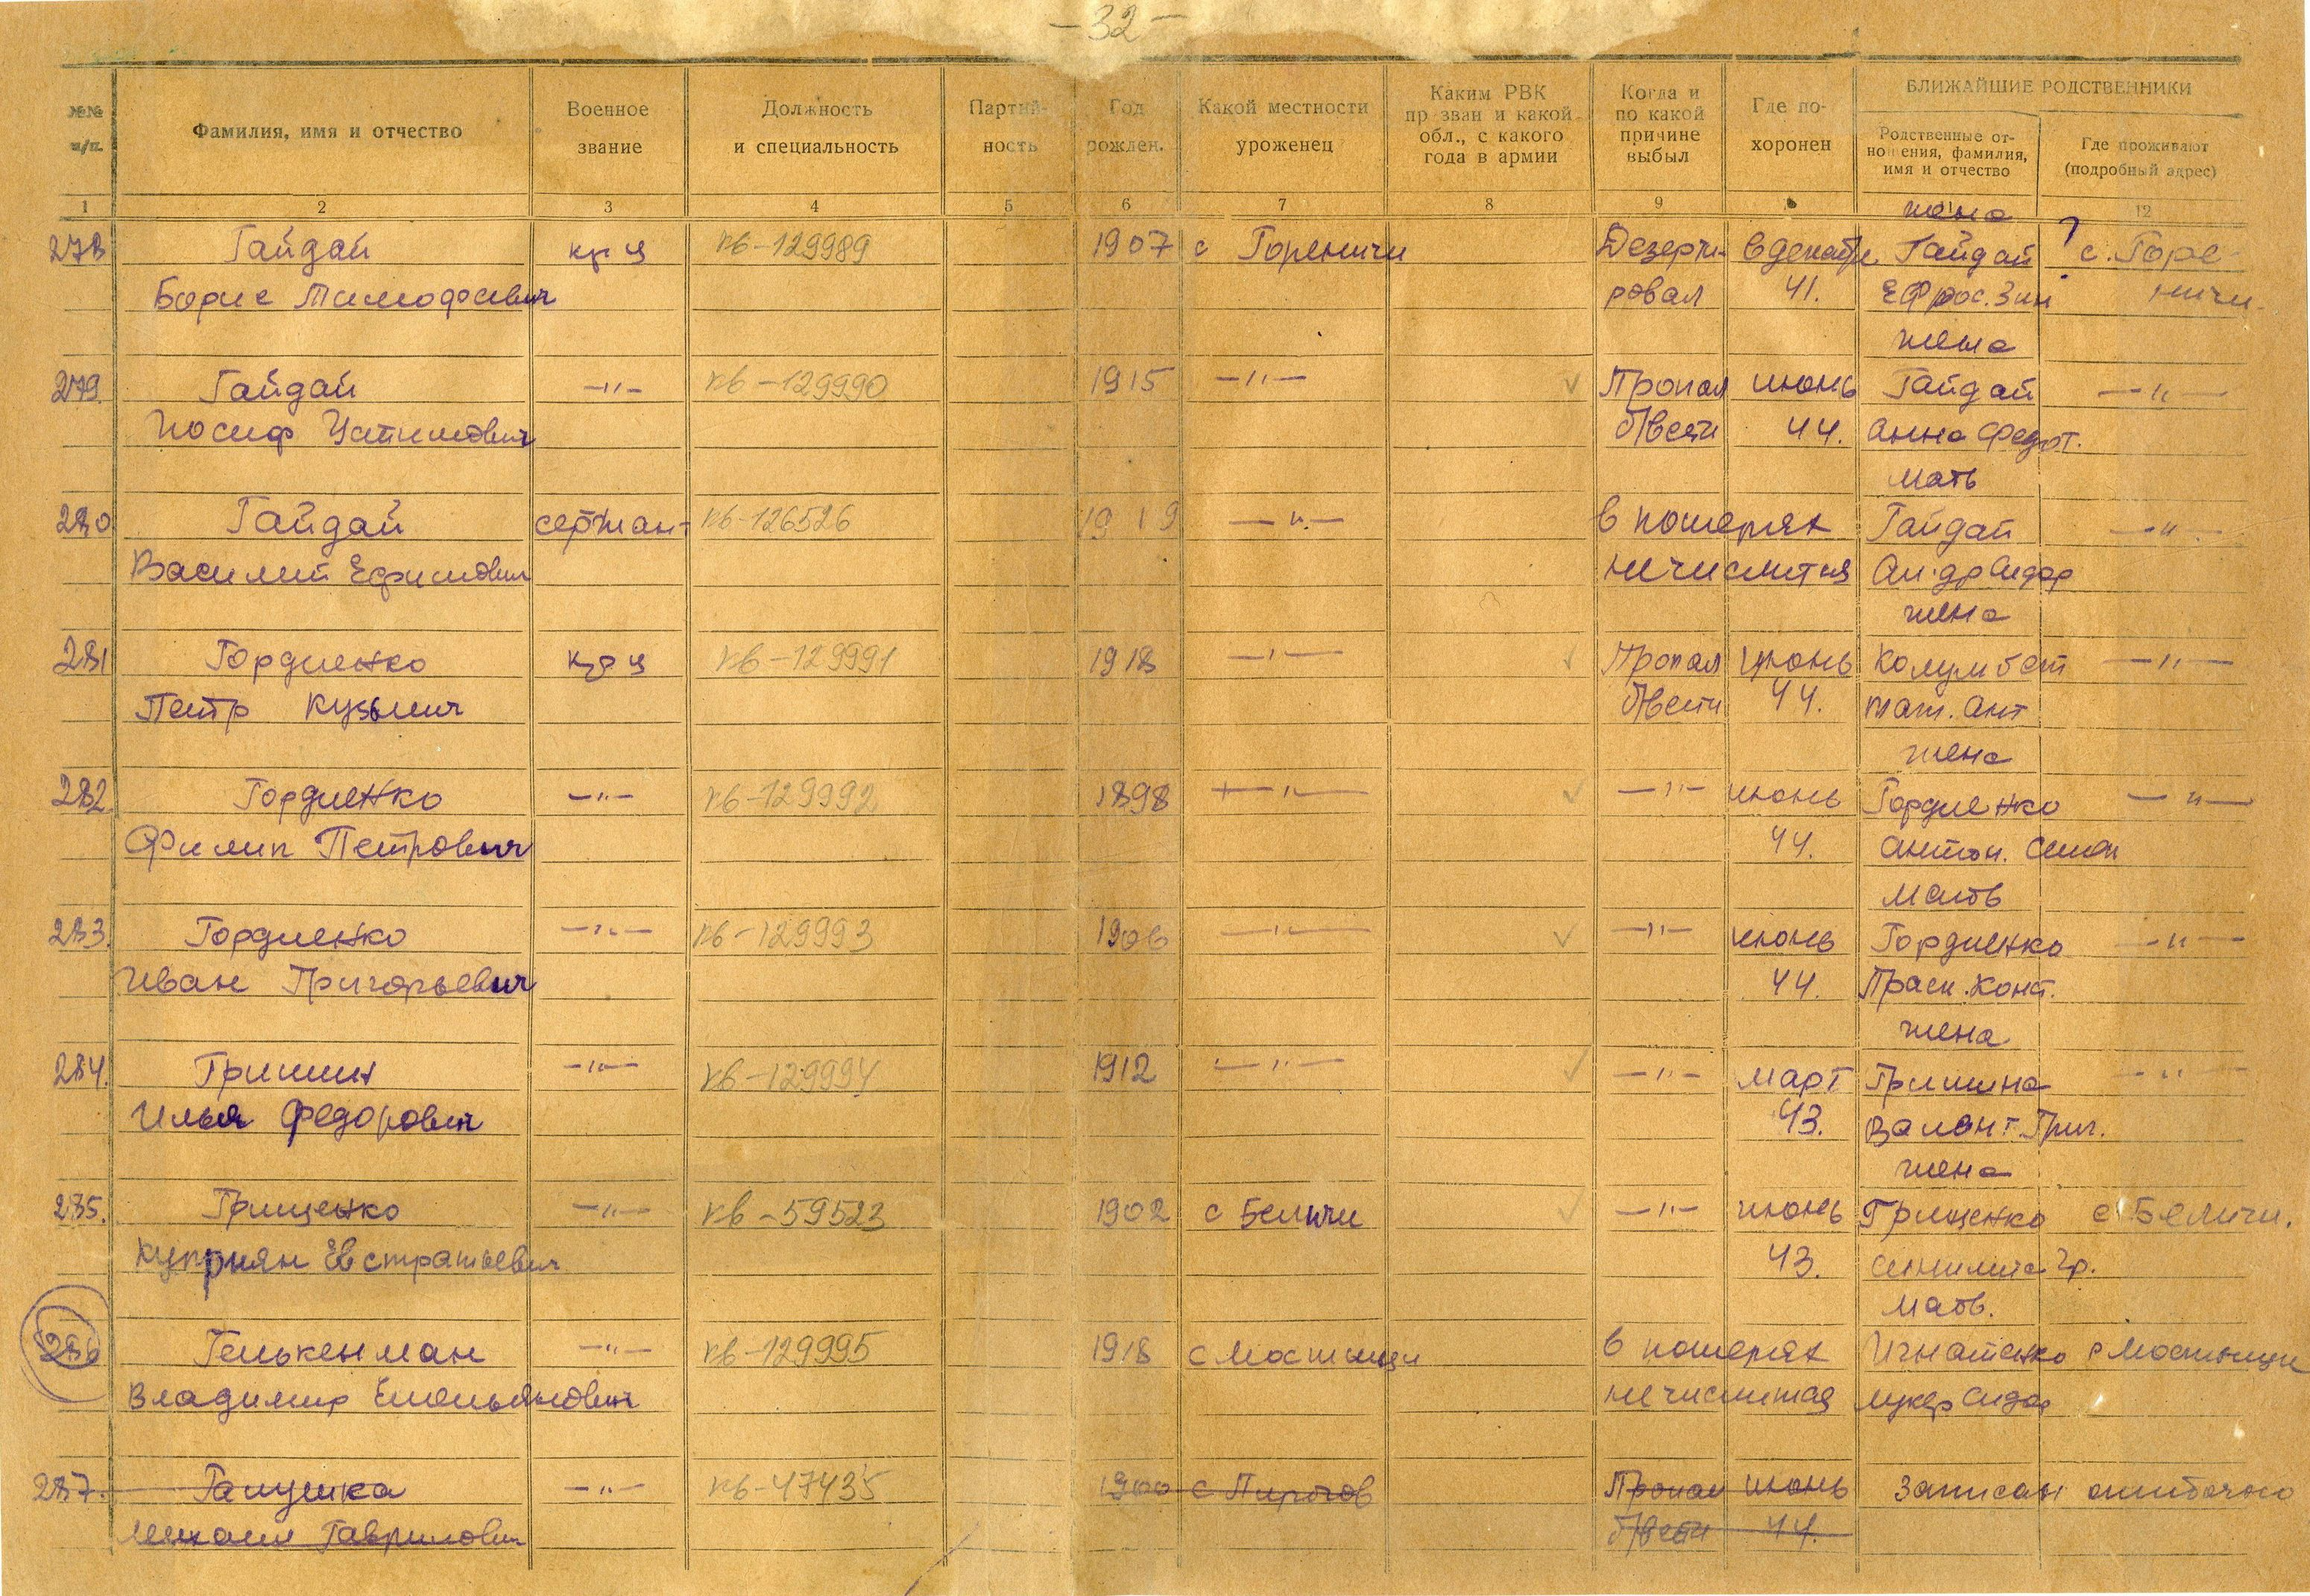 — 32 —
№№ п/п.
Фамилия, имя и отчество
Военное звание
Должность и специальность
Партий- ность
Год рожден.
Какой местности уроженец
Каким РВК пр зван и какой обл., с какого года в армии
Когда и по какой причине выбыл
Где по- хоронен
БЛИЖАЙШИЕ РОДСТВЕННИКИ
Родственные от- ношения, фамилия, имя и отчество
Где проживают (подробный адрес)
1 2 3 4 5 6 7 8 9 12
жена
278 Гайдай кр-ц кв-129989 1907 с Гореничи Дезерти- в декабре Гайдай ? с. Горе-
Борис Тимофеевич ровал 41. Ефрос. Зин ничи.
жена
279. Гайдай —"— кв-129990 1915 —"— √ Пропал июнь Гайдай —"—
Иосиф Устимович б/вести 44. Анна Федот.
мать
280 Гайдай сержант кв-126526 1919 —"— в потерях Гайдай —"—
Василий Ефимович не числится Сидор
жена
281 Гордиенко кр-ц кв-129991 1918 —"— √ Пропал июнь Колумбет —"—
Петр Кузьмич б/вести 44. Тат. Ант
жена
282 Гордиенко —"— кв-129992 1898 —"— √ —"— июнь Гордиенко —"—
Филип Петрович 44. Антон. Семен
мать
283. Гордиенко —"— кв-129993 1906 —"— √ —"— июнь Гордиенко —"—
Иван Григорьевич 44. Праск. Конст.
жена
284. Гришин —"— кв-129994 1912 —"— √ —"— март Гришина —"—
Илья Федорович 43. Валент. Григ.
жена
285. Грищенко —"— кв-59523 1902 с Беличи √ —"— июнь Грищенко с Беличи.
Куприян Евстратьевич 43. Гр.
мать.
286 Гелькенман —"— кв-129995 1918 с Мостищи в потерях Игнатенко с Мостищи
Владимир Емельянович не числится Лукер Сидор
287. Галушка —"— кв-47435 1900 с Пирогов Пропал июнь Записан ошибочно
Михаил Гаврилович б/вести 44.